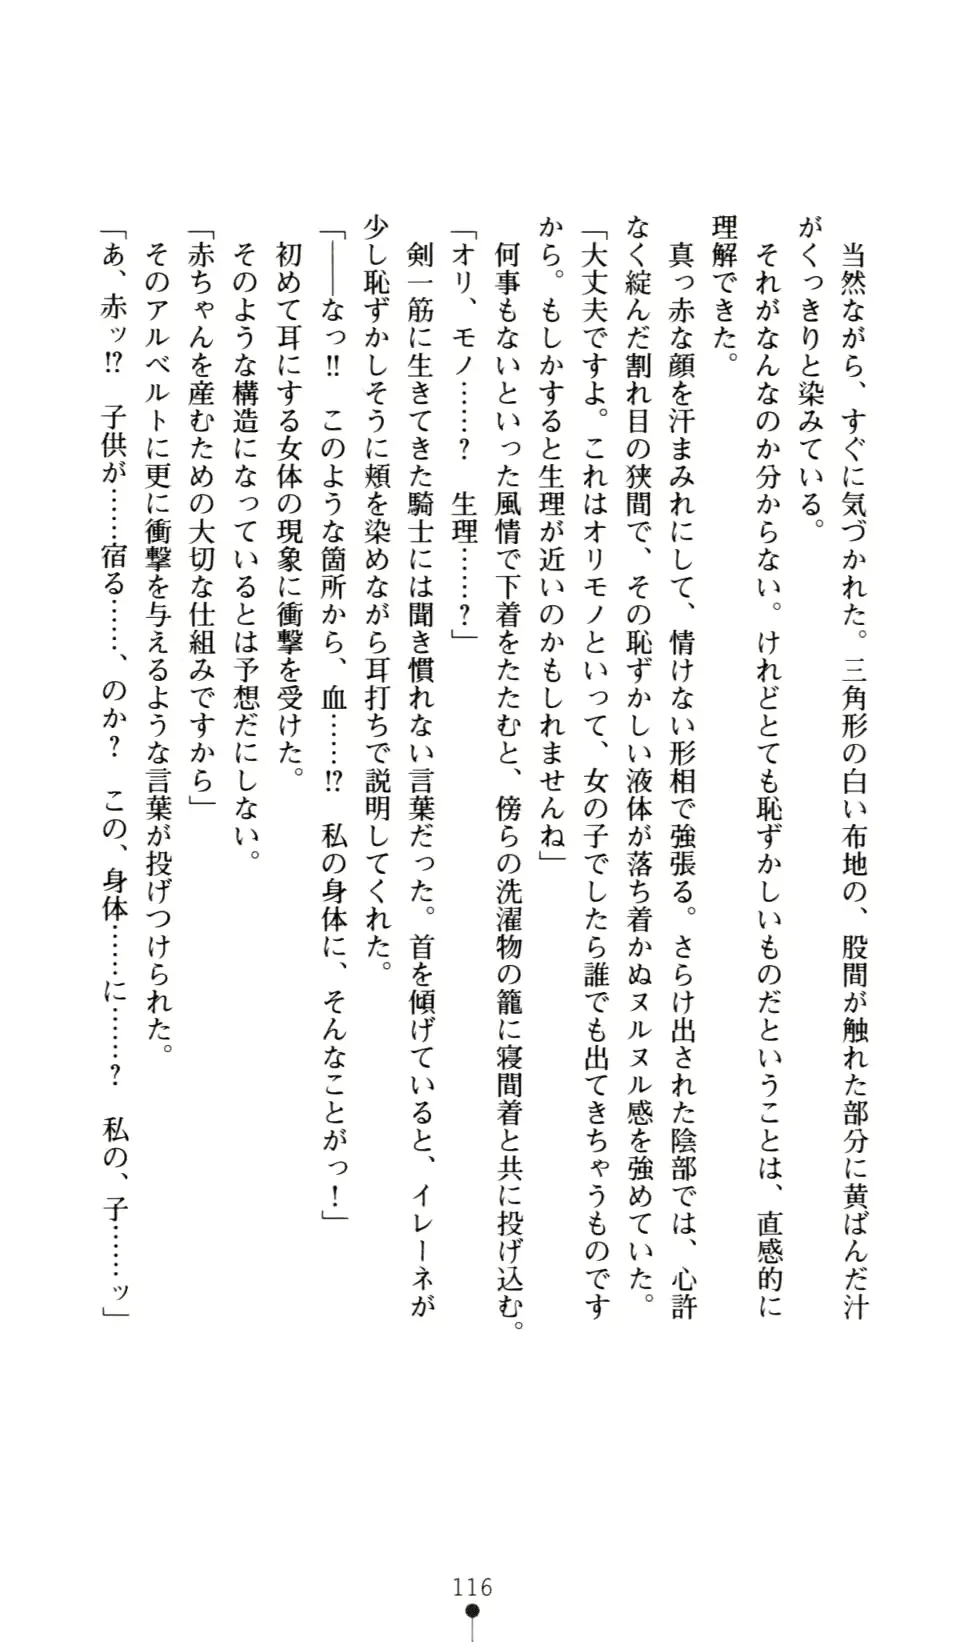 当然ながら、すぐに気づかれた。三角形の白い布地の、股間が触れた部分に黄ばんだ汁
がくっきりと染みている。
それがなんなのか分からない。けれどとても恥ずかしいものだということは、直感的に
理解できた。
真っ赤な顔を汗まみれにして、情けない形相で強張る。さらけ出された陰部では、心許
なく綻んだ割れ目の狭間で、その恥ずかしい液体が落ち着かぬヌルヌル感を強めていた。
「大丈夫ですよ。これはオリモノといって、女の子でしたら誰でも出てきちゃうものです
から。もしかすると生理が近いのかもしれませんね」
何事もないといった風情で下着をたたむと、傍らの洗濯物の籠に寝間着と共に投げ込む。
「オリ、モノ……？　生理……？」
剣一筋に生きてきた騎士には聞き慣れない言葉だった。首を傾げていると、イレーネが
少し恥ずかしそうに頬を染めながら耳打ちで説明してくれた。
「――なっ!!　このような箇所から、血……!?　私の身体に、そんなことがっ！」
初めて耳にする女体の現象に衝撃を受けた。
そのような構造になっているとは予想だにしない。
「赤ちゃんを産むための大切な仕組みですから」
そのアルベルトに更に衝撃を与えるような言葉が投げつけられた。
「あ、赤ッ!?　子供が……宿る……、のか？　この、身体……に……？　私の、子……ッ」
116